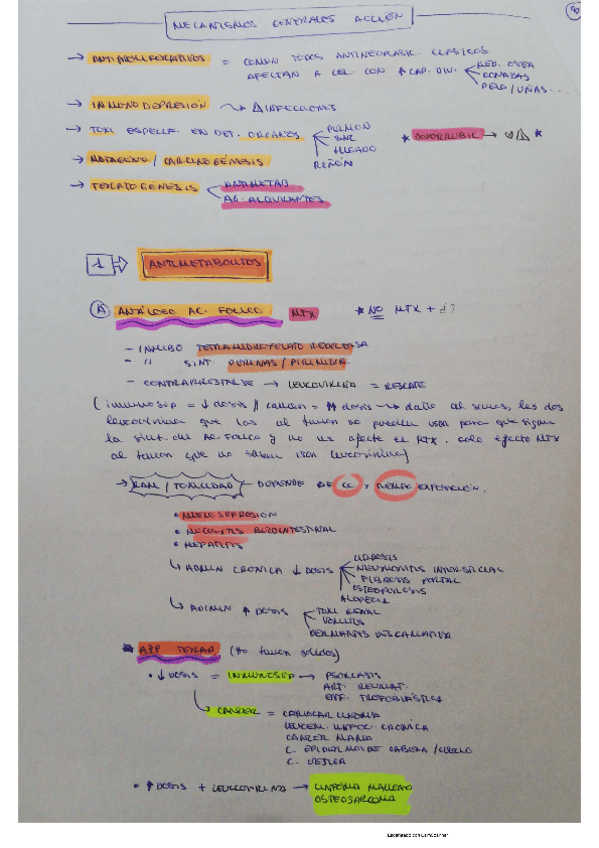 MECANISMOS GENERALES ACCIÓN
→ ANTIPROLIFERATIVOS = COMÚN TODOS ANTINEOPLASIC. CLÁSICOS
AFECTAN A CEL. CON ↑ CAP. DIV.
MED. OSEA
GONADAS
PELO/UÑAS...
→ INMUNODEPRESIÓN → △ INFECCIONES
→ TOX. ESPECÍF. EN DET. ORGANOS
PULMON
SNC
HIGADO
RIÑÓN
* DOXORRUBIC →
→ MUTAGENO / CARCINOGÉNESIS
→ TERATOGÉNESIS
ANTIMETAB
AG. ALQUILANTES
1 ANTIMETABOLITOS
A ANÁLOGO AC. FOLICO: MTX * NO MTX +
- INHIBO TETRAHIDROFOLATO REDUCTASA
- " SINT. PURINAS / PIRIMIDIN.
- CONTRARRESTARSE → LEUCOVORINA = RESCATE
(inmunosup = ↓ dosis // cancer = ↑↑ dosis → daño al sanas, les dos
leucovorina que las al tumor no pueden usar para que sigan
la sint. del Ac. Folico y no les afecte el MTX, solo efecto MTX
al tumor que no saben usar leucovorina)
→ RAM / TOXICIDAD - DEPENDE DE CC y TIEMPO EXPOSICIÓN.
• MIELOSUPRESION
• MUCOSITIS GI
• HEPATITIS
ADMIN CRONICA ↓ DOSIS
CIRROSIS
NEUMONITIS INTERSTICIAL
FIBROSIS PORTAL
OSTEOPOROSIS
ALOPECIA
ADMIN ↑ DOSIS
TOX. RENAL
VOMITOS
DERMATITIS DESCAMATIVA
APP TERAP (No tumor solidos)
• ↓ DOSIS = INMUNOSUP → PSORIASIS
ART. REUMAT.
ENF. TROFOBLÁSTICA
CANCER = CORIOCARCINOMA
LEUCEM. LINFOC. CRONICA
CANCER MAMA
C. EPIDERMOIDE CABEZA / CUELLO
C. VEJIGA
• ↑ DOSIS + LEUCOVORINA → LINFOMA MALIGNO
OSTEOSARCOMA
Escaneado con CamScanner